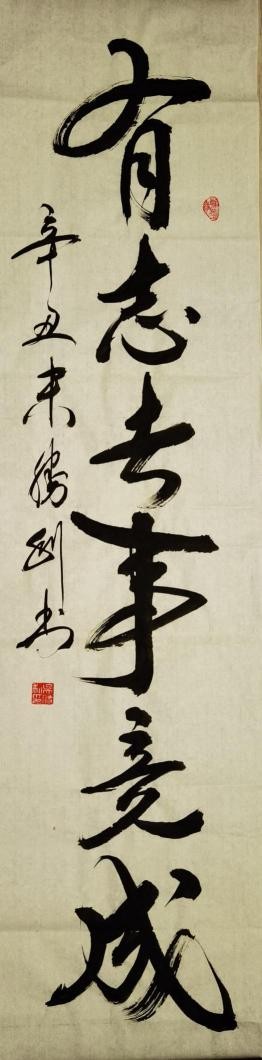 有志者事竟成
辛丑末勝剛书